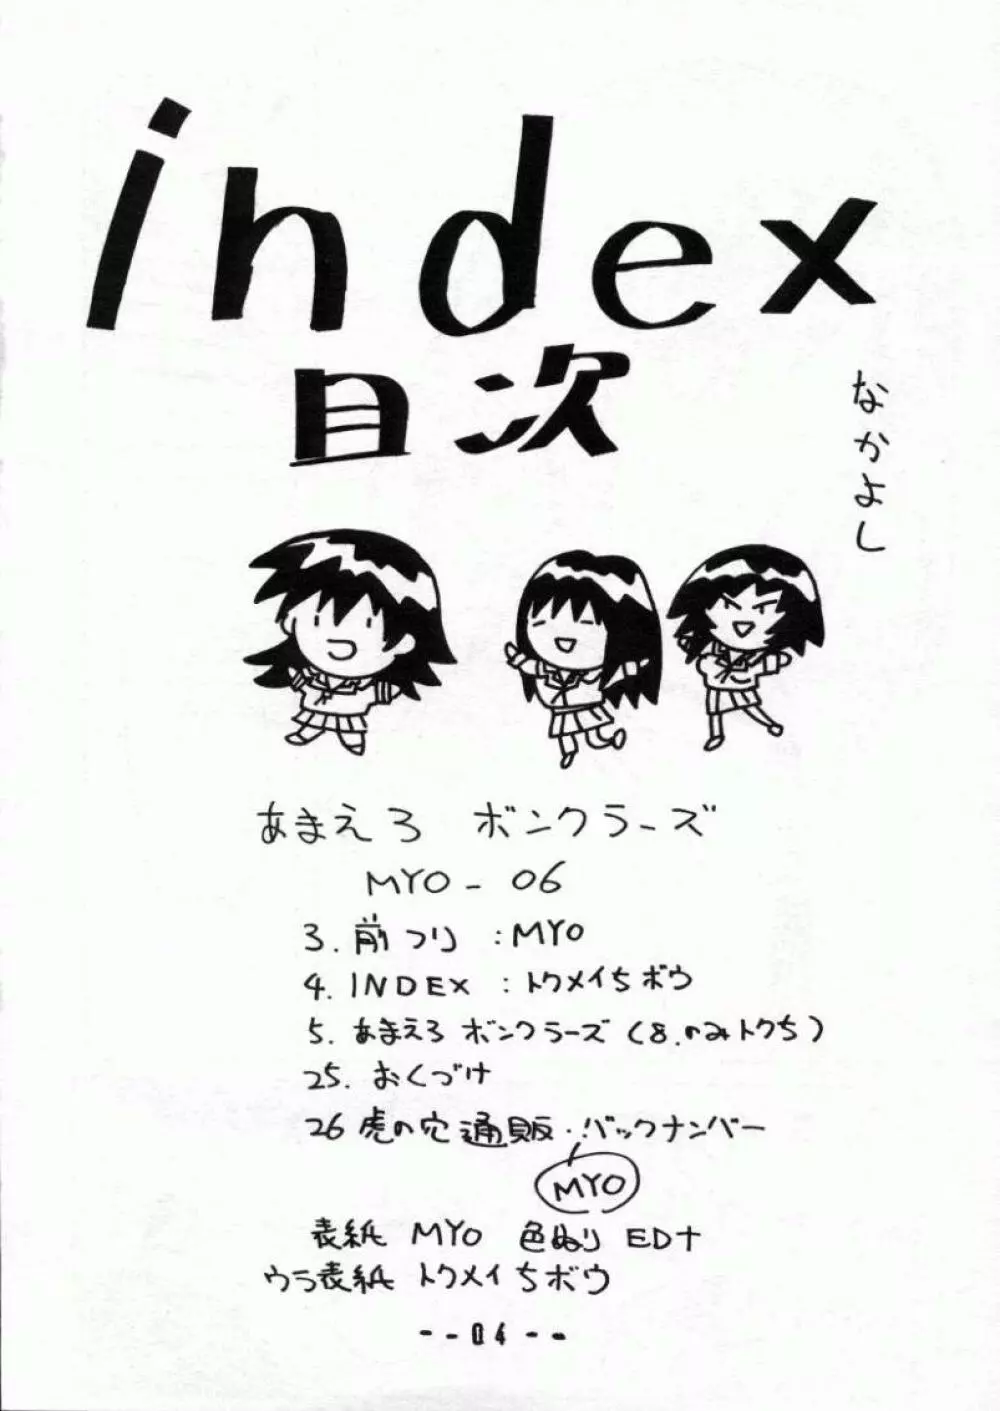 index
目次
なかよし
あまえろ ボンクラーズ
MYO - 06
3. 前フリ : MYO
4. INDEX : トクメイちボウ
5. あまえろ ボンクラーズ (8.のみトクち)
25. おくづけ
26 虎の穴 通販・バックナンバー
MYO
表紙 MYO 色ぬり ED十
ウラ表紙 トクメイちボウ
--04--